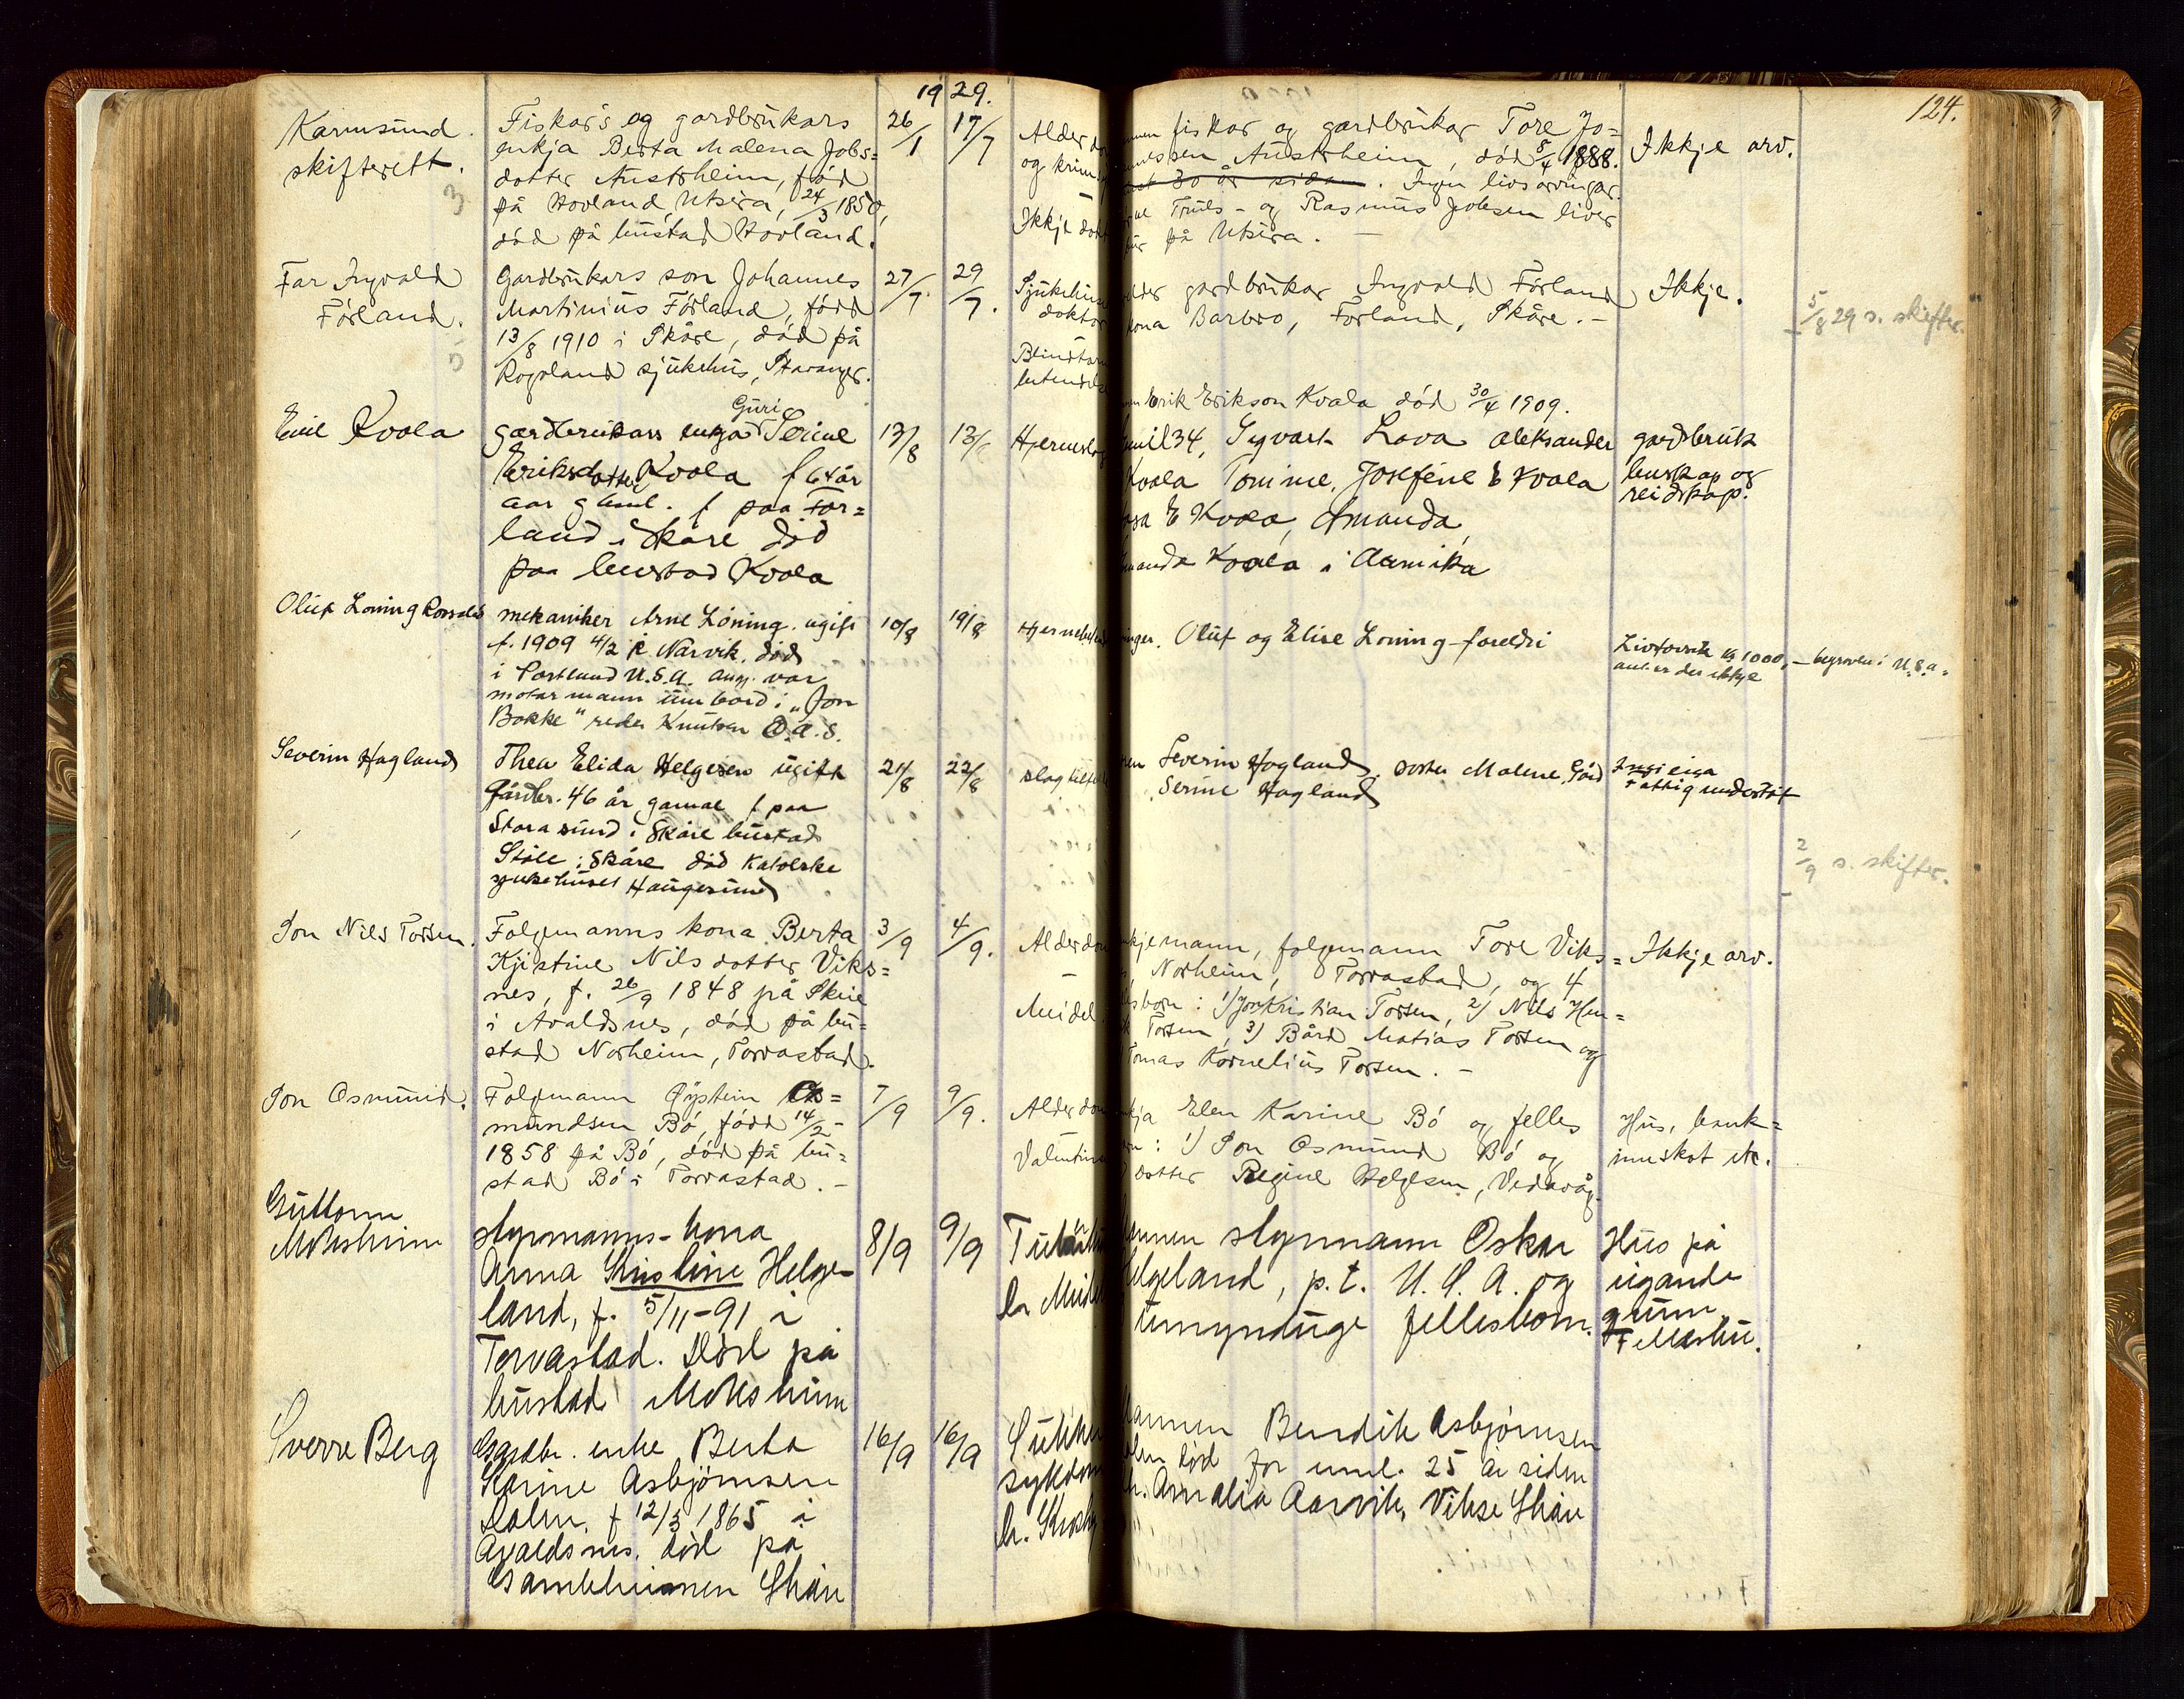 1929.
124.
Karmsund
skifterett.
3
Fiskars og gardbrukars
enkja Berta Malena Jobs=
dotter Austrheim, född
på Hovland Utsira, 24/3 1850,
död på bustad Hovland.
26/1
17/7
Alder
og
Ikkje
fiskar og gardbrukar Tore Jo=
Austrheim, död 5/4 1888.
30 år sidan. Ingen livsarvingar.
Truls- og Rasmus Jobsen liver
på Utsira. —
Ikkje arv.
Far Ingvald
Förland.
Gardbrukars son Johannes
Martinius Förland, född
13/8 1910 i Skåre, död på
Rogaland sjukehus, Stavanger.
27/7.
29/7.
Sjukehus
doktor
gardbrukar Ingvald Förland
kona Barbro, Förland, Skåre. —
Ikkje.
5/8 29 s. skifter.
Emil Kvala
Guri
gardbrukars enkja Serine
Eriksdotter Kvala f 64 år
aar gaml. f paa För=
land i Skåre död
paa bustad Kvala
13/8
Erik Erikson Kvala död 30/4 1909.
Emil 34, Sigvart Lava Aleksander
Kvala Tomine, Josefine E Kvala
E Kvala, Amanda,
Kvala i Aamrika
gardsbruk
buskap og
reidskap.
Oluf Löning
mekaniker Arne Löning. ugift
f. 1909 4/2 i Narvik. död
i Portland U.S.A. Ang. var
motormann umbord i "Jon
Bakke" reder Knutsen O.A.S.
10/8
19/8
Oluf og Elise Löning foreldri
Livforsik kr 1000,— begraven i U.S.A.
anner der ikkje
Severin Hagland
Thea Elida Helgesen ugift
Gårdbr. 46 år gamal f paa
Storasund i Skåre bustad
Ståle i Skåre död Katolske
sjukehuset Haugesund
21/8
22/8
Severin Hagland, soster Malene
Serine Hagland
Ingi eiga
Fattig understöt
2/9 s. skifter.
Son Nils Torsen.
Folgemanns kona Berta
Kjistine Nilsdotter Viks=
nes, f. 26/9 1848 på Skeie
i Avaldsnes, död på bu=
stad Norheim, Torvastad.
3/9
4/9.
Alderdom
—
Meidel
enkjemann, folgemann Tore Viks=
Norheim, Torvastad, og 4
born: 1) Jon Kristian Torsen, 2) Nils Hen=
Torsen, 3) Bård Matias Torsen og
Tomas Kornelius Torsen. —
Ikkje arv.
Son Osmund.
Folgemann Öystein Os=
mundsen Bö, född 14/2-
1858 på Bö, död på bu=
stad Bö i Torvastad. —
7/9
9/9.
Alderdom
Valentin
Elen Karine Bö og felles
1) Son Osmund Bö og
dotter Regine Helgesen, Vedavåg.
Hus, bank=
innskot etc.
Guttorm
Moksheim
styrmanns-kona
Anna Kristine Helge-
land, f. 5/11-91 i
Torvastad. Död på
bustad Moksheim
8/9
9/9
styrmann Oskar
Helgeland, p.t. U.S.A. og
umyndige fellesborn.
Hus på
eigande
grunn,
Fellesbu.
Sverre Berg
Gardbr. enke Berta
Karine Asbjörnsen
Dalen, f 12/3 1865 i
Avaldsnes. död på
Gamleheimen Skåre
16/9
16/9
Sukker
sykdom
Mannen Bendik Asbjörnsen
Dalen död for uml. 25 år siden
Amalia Aarvik, Vikse Skåre